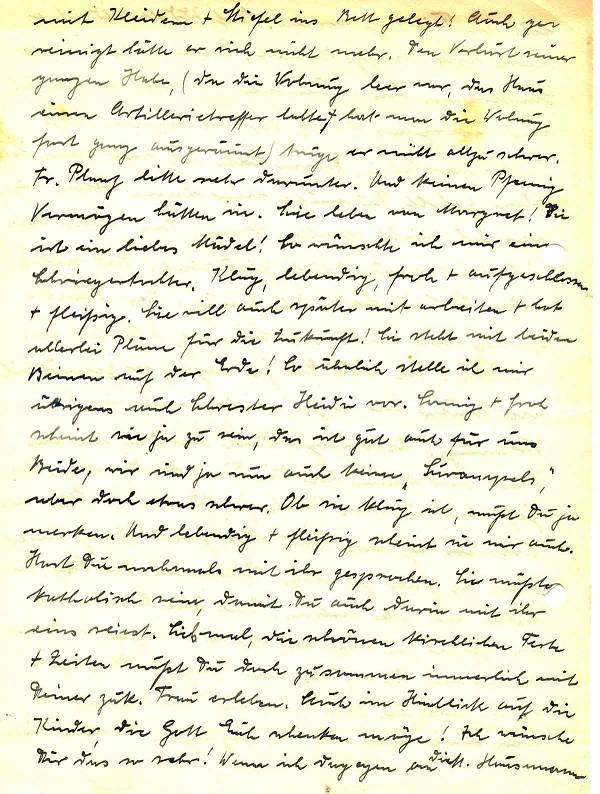 mit Kleidern + Stiefel ins Bett gelegt! Auch ge-
reinigt hätte er sich nicht mehr. Den Verlust seiner
ganzen Habe, (da die Wohnung leer war, das Haus
einen Artillerietreffer hatte, hat man die Wohnung
fast ganz ausgeräumt) trüge er nicht allzu schwer.
Fr. Plautz litte sehr darunter. Und keinen Pfennig
Vermögen hätten sie. Sie leben von Margret! Die
ist ein liebes Mädel! So wünschte ich mir eine
Schwiegertochter. Klug, lebendig, froh + aufgeschlossen
+ fleißig. Sie will auch später mit arbeiten + hat
allerlei Pläne für die Zukunft! Sie steht mit beiden
Beinen auf der Erde! So ähnlich stelle ich mir
übrigens auch Schwester Heidi vor. Sonnig + froh
scheint sie ja zu sein, das ist gut auch für uns
Beide, wir sind ja nun auch keine „
aber doch etwas schwer. Ob sie klug ist, mußt Du ja
merken. Und lebendig + fleißig scheint sie mir auch.
Hast Du nochmals mit ihr gesprochen. Sie müßte
katholisch sein, damit Du auch darin mit ihr
eins seiest. Sieh mal, die schönen kirchlichen Feste
+ Zeiten mußt Du doch zusammen innerlich mit
Deiner zuk. Frau erleben. Auch im Hinblick auf die
Kinder, die Gott Euch schenken möge! Ich wünsche
Dir das so sehr! Wenn ich dagegen an dieses. Hausmann